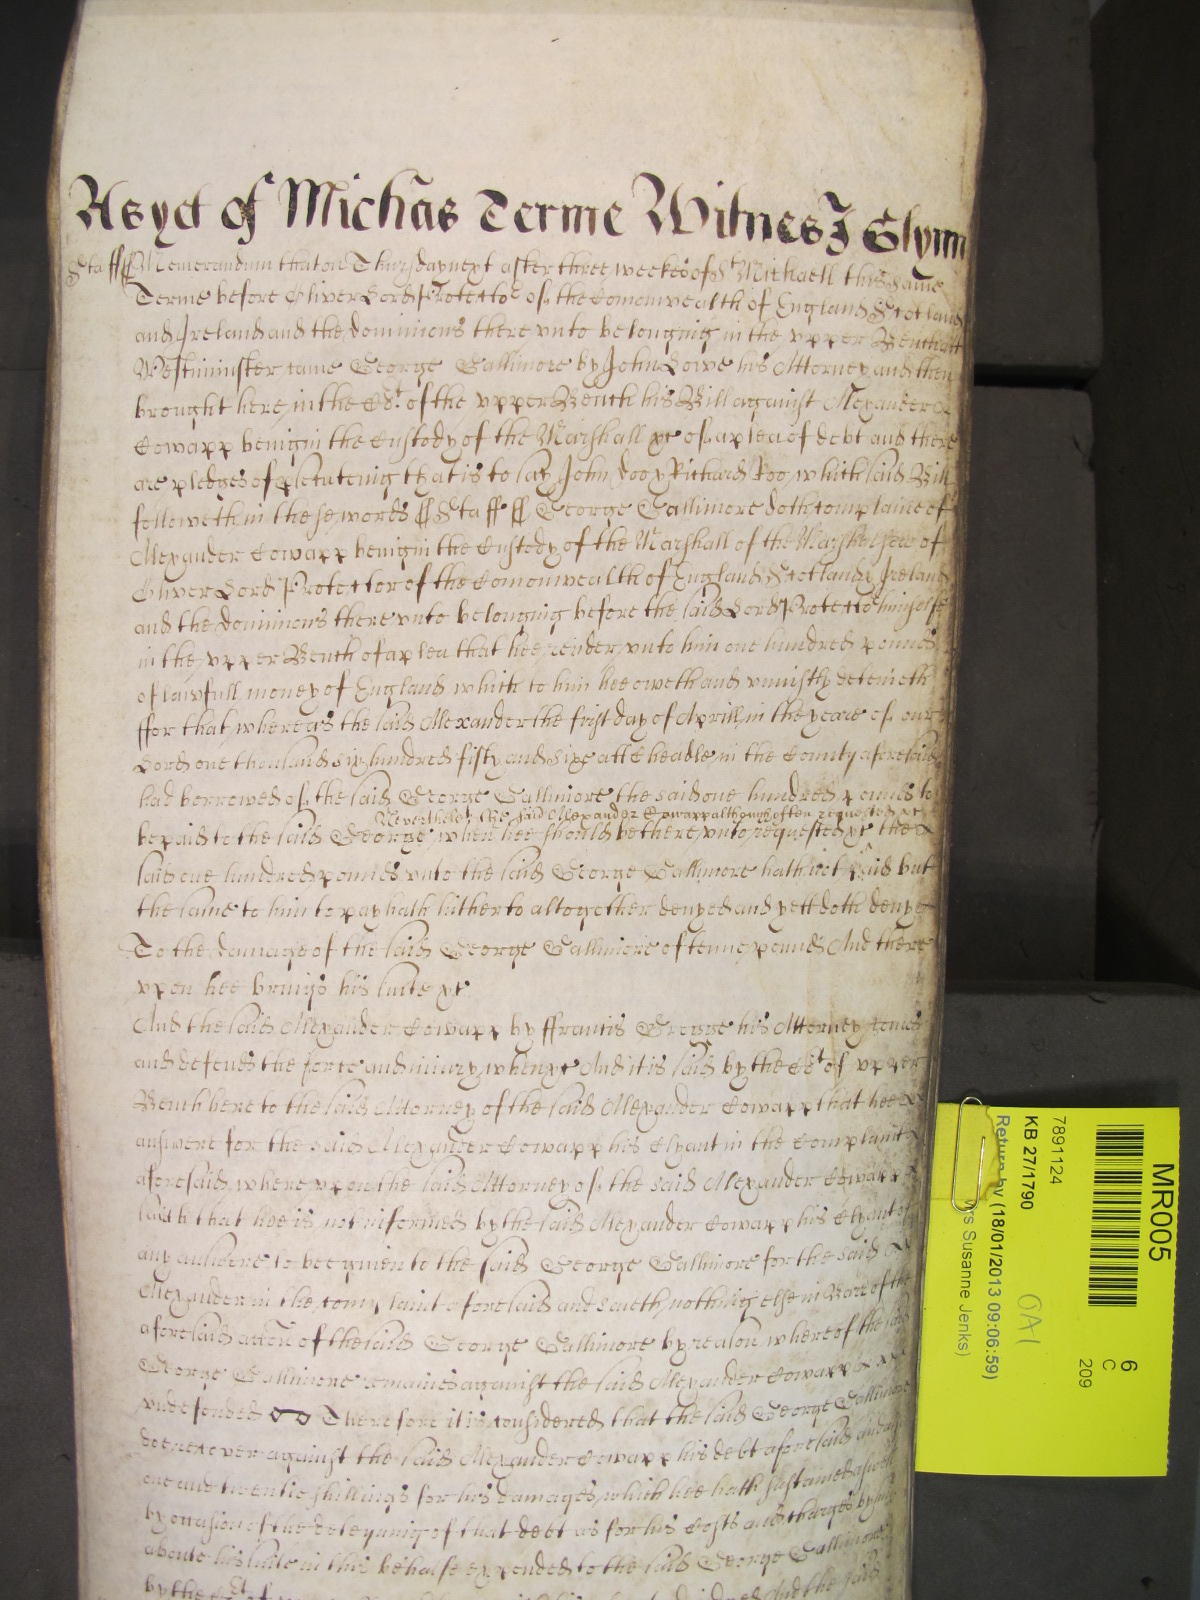 As yet of Michas Terme Witnes J Glynn
Staff ss Memorandum that on Thursday next after three weekes of St Michaell this same
Terme before Oliver Lord Protector of the Comonwealth of England Scotland
and Ireland and the dominions there vnto belonging in the vpper Bench att
Westminster came George Gallimore by John Lowe his Attorney and then
brought here in the Cort of the vpper Bench his Bill against Alexander
Cowapp being in the Custody of the Marshall &c of a plea of debt and there
are pledges of prosecuteing that is to say John Doo & Richard Roo which said Bill
followeth in these words ss Staff ss George Gallimore doth complaine of
Alexander Cowapp being in the Custody of the Marshall of the Marshalsea of
Oliver Lord Protector of the Comonwealth of England Scotland & Ireland
and the dominions there vnto belonging before the said Lord Protector himselfe
in the vpper Bench of a plea that hee render vnto him one hundred pounds
of lawfull money of England which to him hee oweth and vniustly deteineth
ffor that whereas the said Alexander the first day of Aprill in the yeare of our
Lord one thousand six hundred fifty and sixe att Cheadle in the County aforesaid
had borrowed of the said George Gallimore the said one hundred pounds to
Neverthelesse the said Alexander Cowapp although often requested &c
be paid to the said George when hee should be there vnto requested &c the
said one hundred pounds vnto the said George Gallimore hath not paid but
the same to him to pay hath hitherto altogether denyed and yett doth denye
To the damage of the said George Gallimore of tenne pounds And there
vpon hee brings his suite &c
And the said Alexander Cowapp by ffrancis Gregge his Attorney comes
and defends the force and iniury when &c And it is said by the Cort of vpper
Bench here to the said Attorney of the said Alexander Cowapp that hee
answere for the said Alexander Cowapp his Clyant in the Complaint
aforesaid where vpon the said Attorney of the said Alexander Cowapp
saith that hee is not informed by the said Alexander Cowapp his Clyant of
any answere to bee given to the said George Gallimore for the said
Alexander in the complaint aforesaid and saieth nothing else in Barre of the
aforesaid accon of the said George Gallimore by reason whereof the said
George Gallimore remaines against the said Alexander Cowapp
vndefended Therefore it is considered that the said George Gallimore
doe recover against the said Alexander Cowapp his debt aforesaid and
one and twentie shillings for his damages which hee hath sustained aswell
by occasion of the deteyning of that debt as for his Costs and charges by him
aboute his suite in this behalfe expended to the said George Gallimore
by the Cort of And the said
MR005
7891124
KB 27/1790
Return by (18/01/2013 09:06:59)
Mrs Susanne Jenks)
6
C
209
OA1